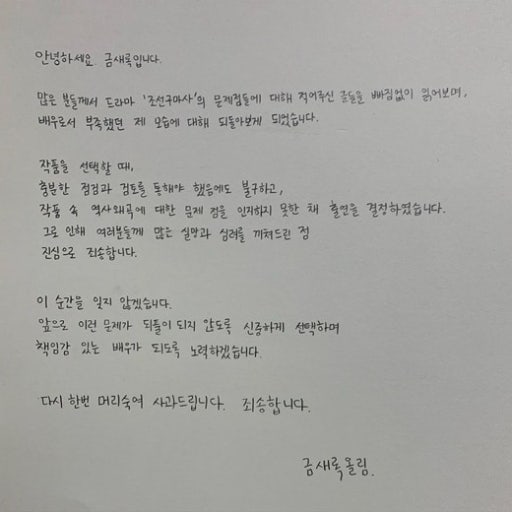 안녕하세요 금새록입니다.
많은 분들께서 드라마 '조선구마사'의 문제점들에 대해 적어주신 글들을 빠짐없이 읽어보며,
배우로서 부족했던 제 모습에 대해 되돌아보게 되었습니다.
작품을 선택할 때,
충분한 점검과 검토를 통해야 했음에도 불구하고,
작품 속 역사왜곡에 대한 문제 점을 인지하지 못한 채 출연을 결정하였습니다.
그로 인해 여러분들께 많은 실망과 심려를 끼쳐드린 점
진심으로 죄송합니다.
이 순간을 잊지 않겠습니다.
앞으로 이런 문제가 되풀이 되지 않도록 신중하게 선택하며
책임감 있는 배우가 되도록 노력하겠습니다.
다시 한번 머리숙여 사과드립니다. 죄송합니다.
금새록 올림.